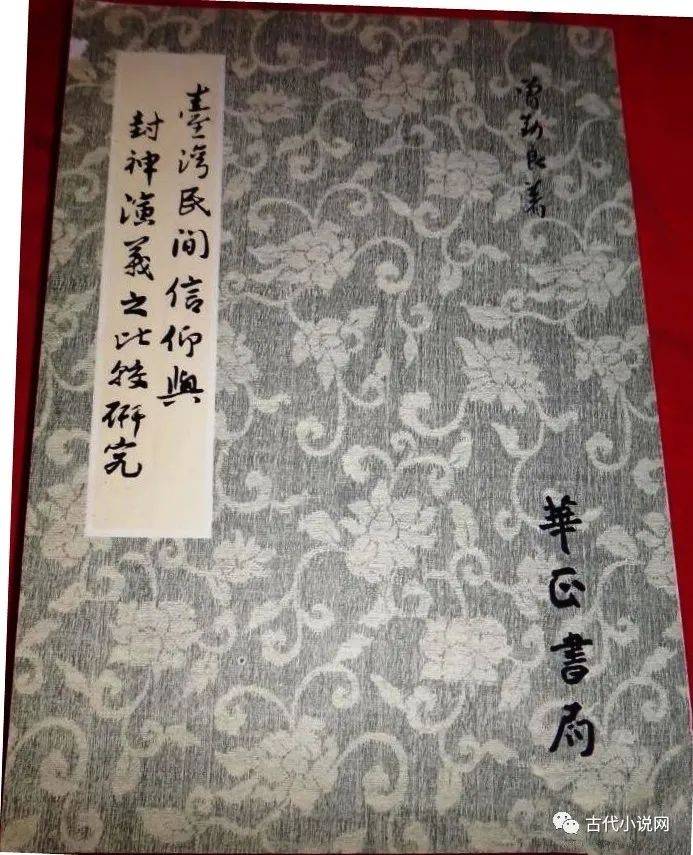 曾勤良著
華正書局
臺灣民間信仰與
封神演義之比較研究
古代小说网